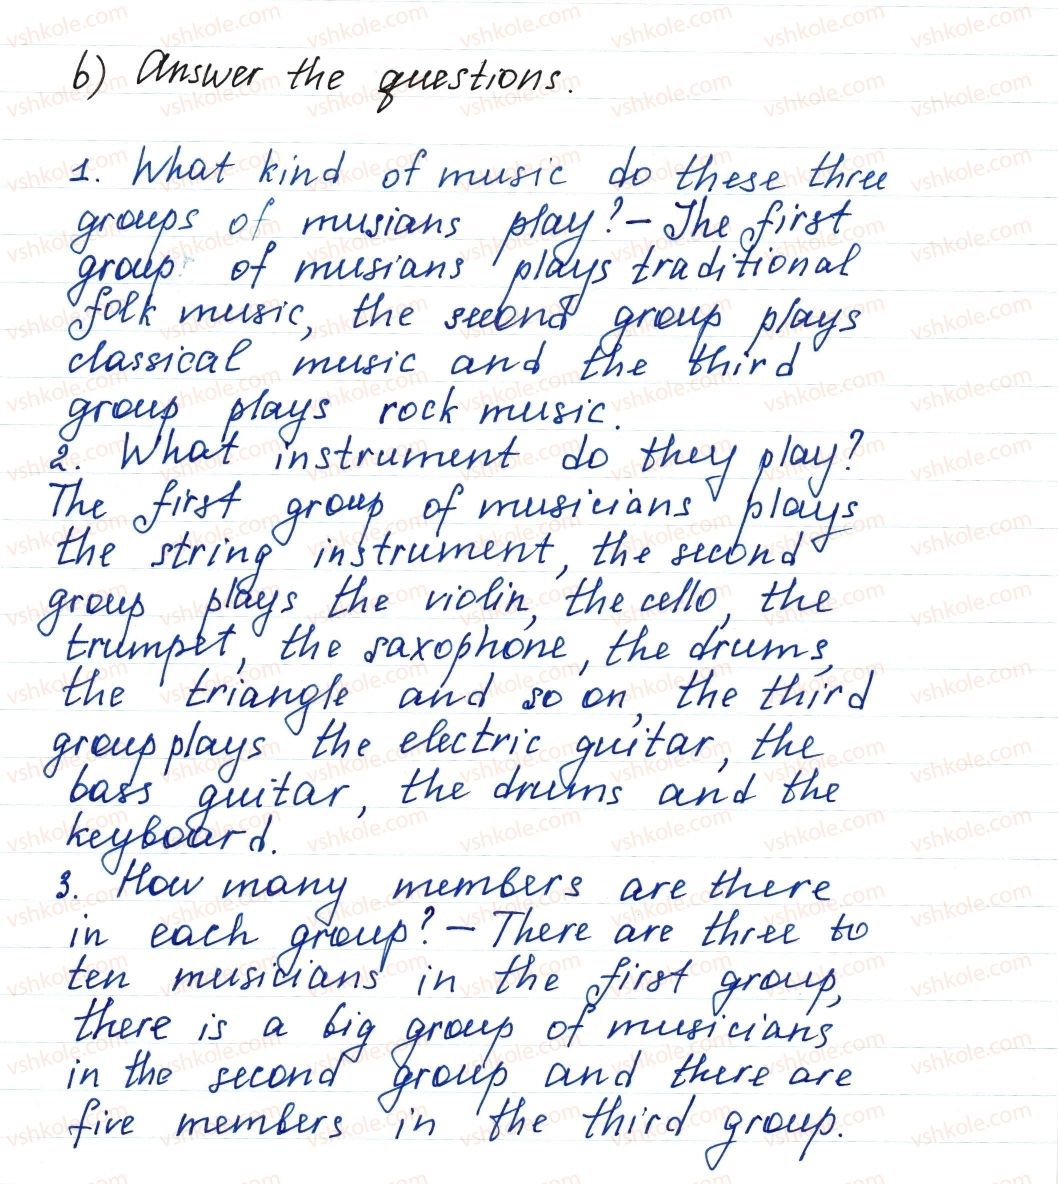 b) Answer the questions.
1. What kind of music do these three
groups of musians play? – The first
group of musians plays traditional
folk music, the second group plays
classical music and the third
group plays rock music.
2. What instrument do they play?
The first group of musicians plays
the string instrument, the second
group plays the violin, the cello, the
trumpet, the saxophone, the drums,
the triangle and so on, the third
group plays the electric guitar, the
bass guitar, the drums and the
keyboard.
3. How many members are there
in each group? – There are three to
ten musicians in the first group,
there is a big group of musicians
in the second group and there are
five members in the third group.